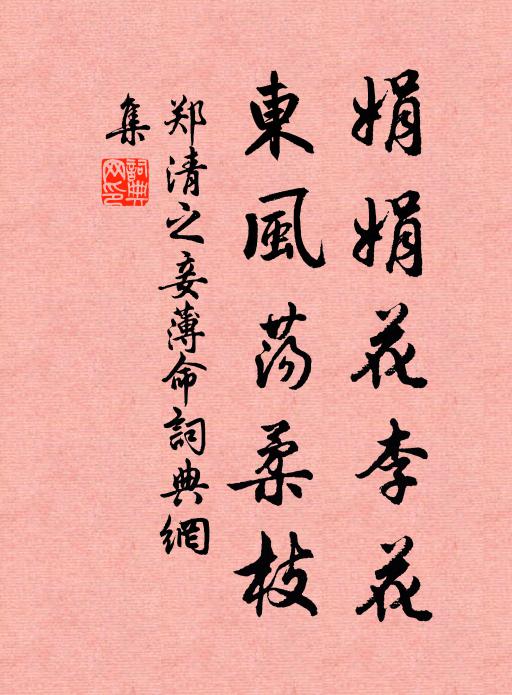 娟娟花李花
東風荡柔枝
郑清之妾薄命詞典網
集
詞典網印